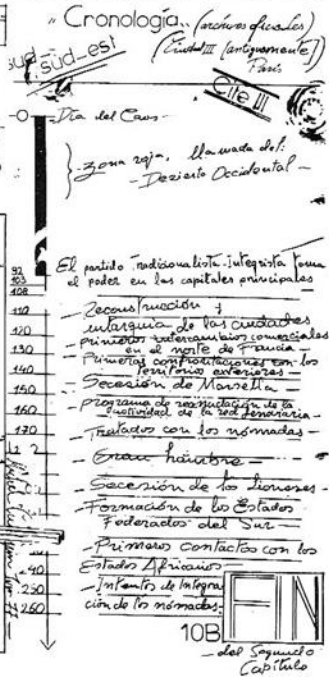 "Cronología" (archivos oficiales)
(Ciudad III [antiguamente] París
sud
sud-est
Cite III
-0- Día del Caos-
zona roja, llamada del:
-Dezierto Occidental-
El partido Tradizionalista-Integrista toma
el poder en las capitales principales
92
103
108
110
120
130
140
150
160
170
-Reconstrucción y
autarquía de las ciudades
-primeros intercambios comerciales
en el norte de Francia-
-Primeras confrontaciones con los
territorios exteriores-
-Secesión de Marsella-
-programa de reanudación de la
actividad de la red ferroviaria-
-Tratados con los nómadas-
-Gran hambre-
-Secesión de los lioneses-
-Formación de los Estados
Federados del Sur-
-Primeros contactos con los
Estados Africanos-
-Intentos de Integra
ción de los nómadas-
240
250
260
10B
FIN
-del Segundo
Capítulo